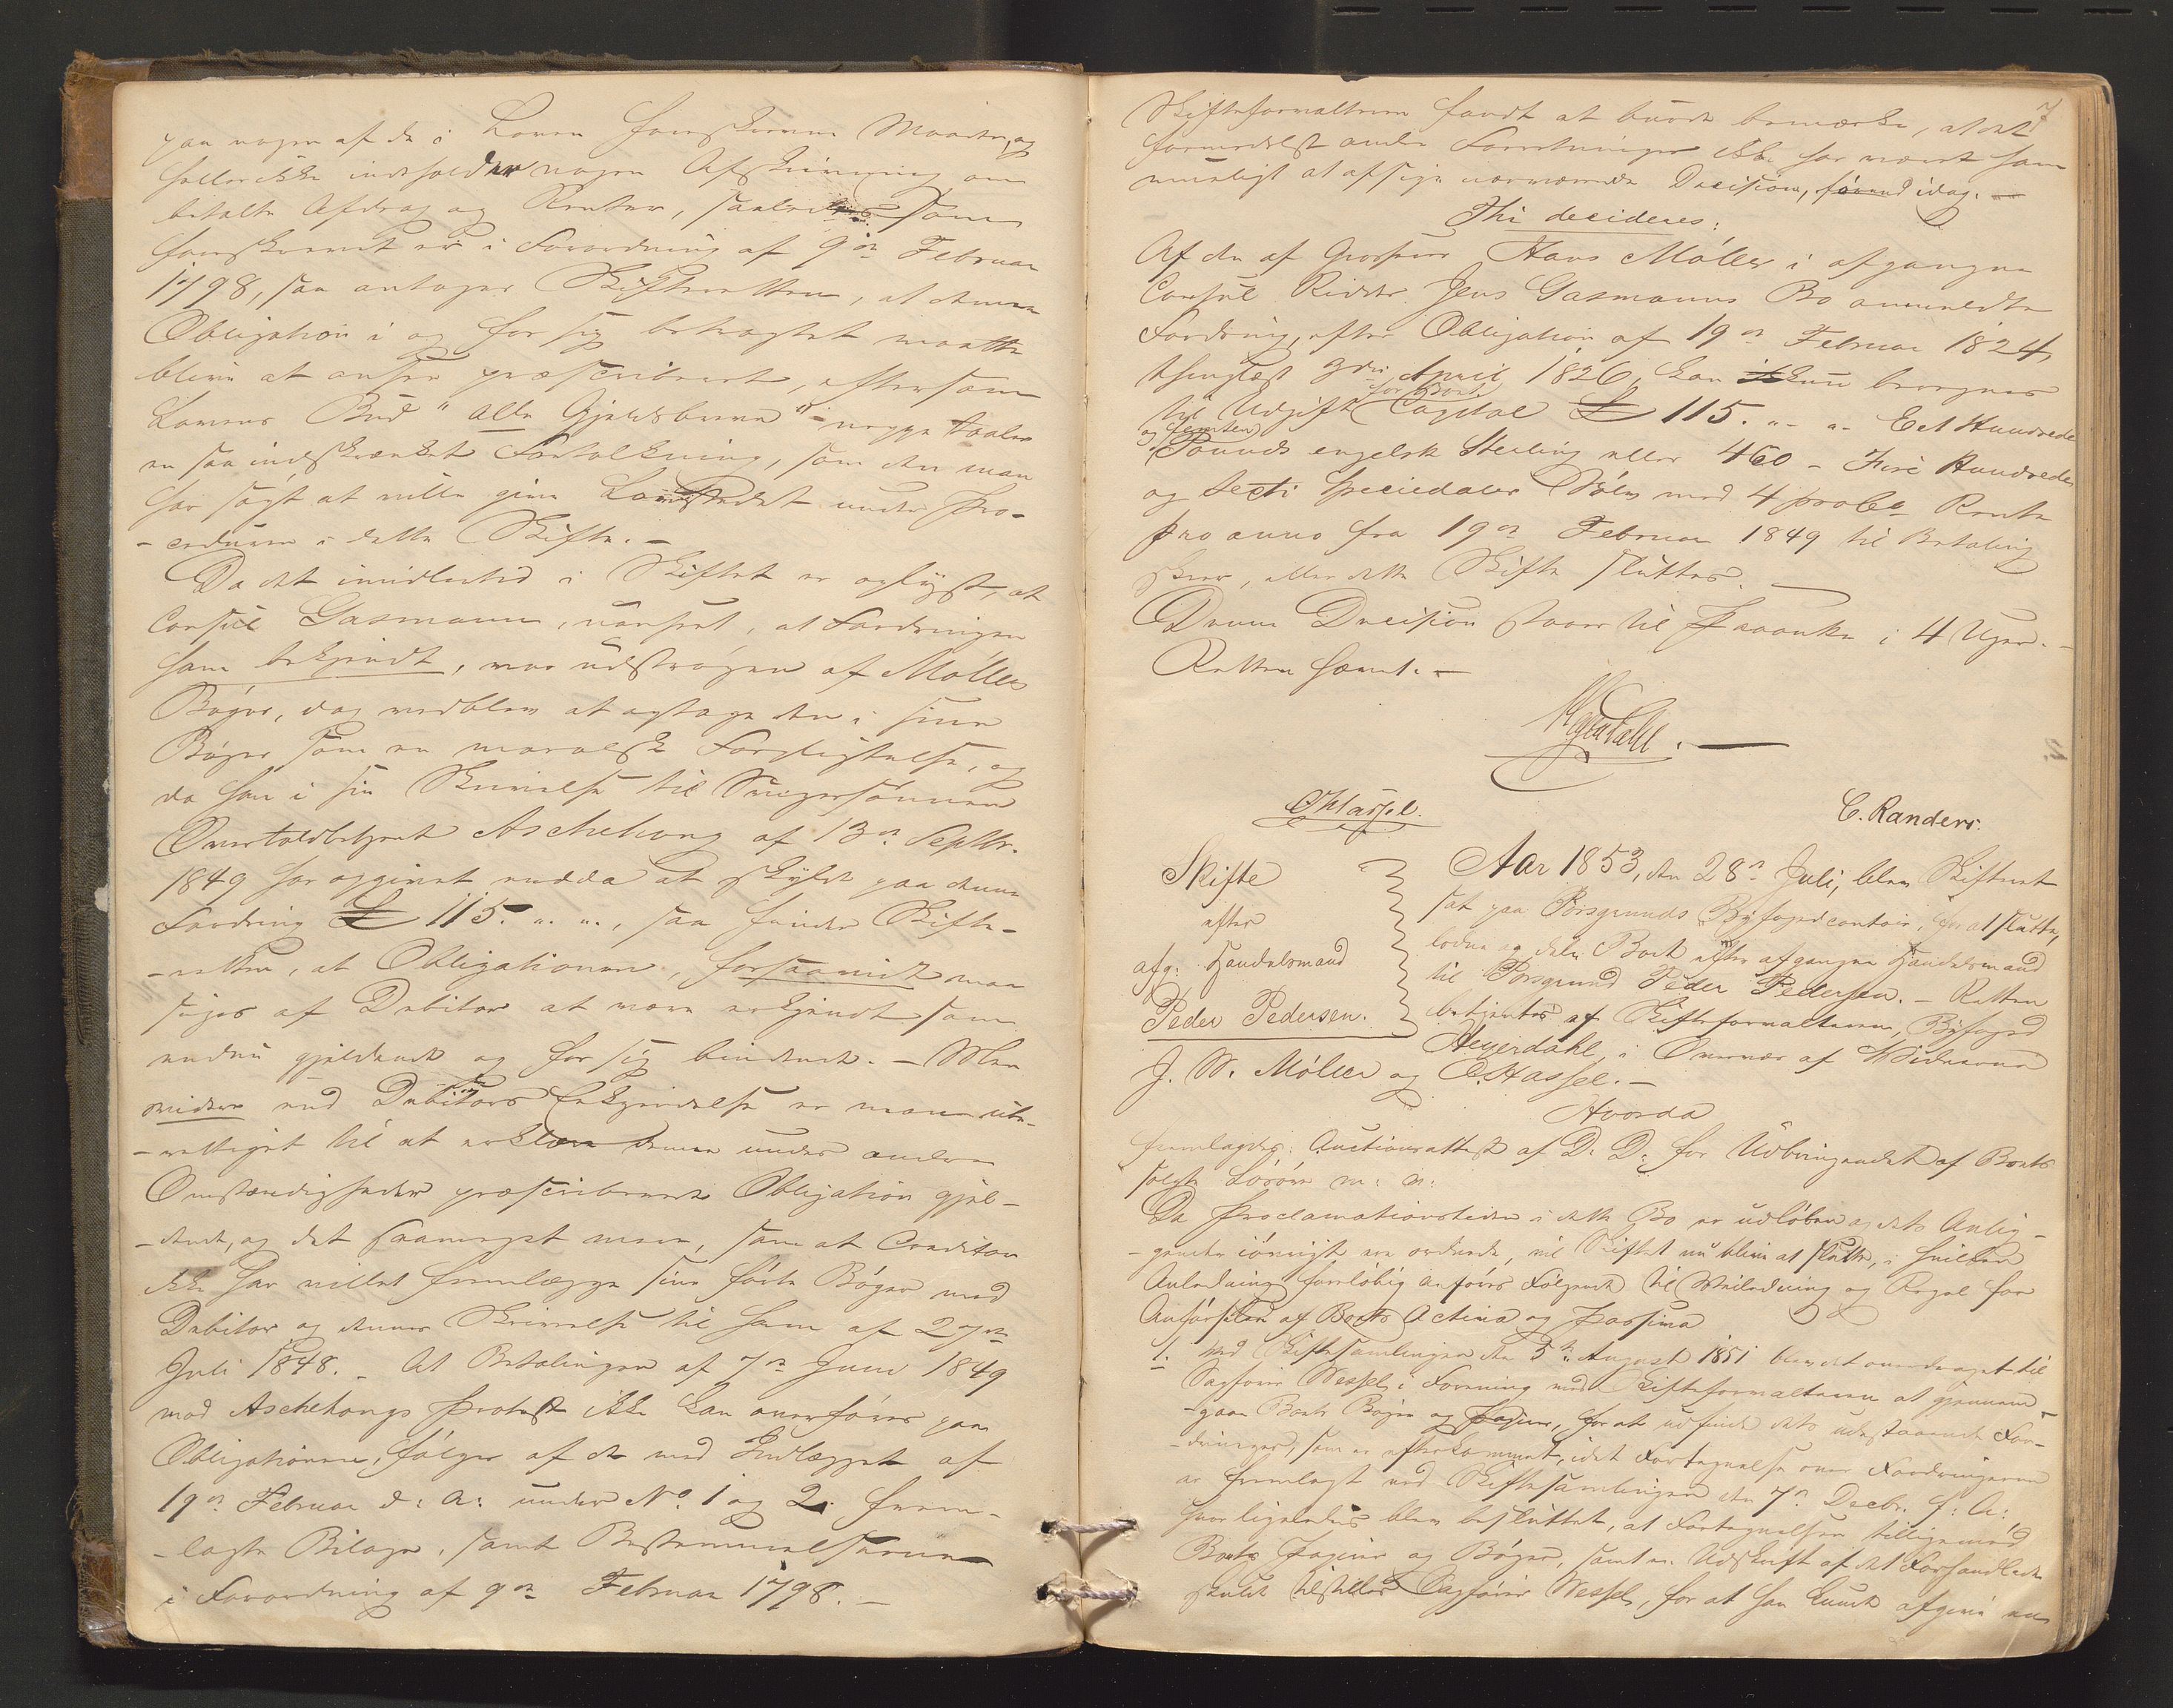 paa nogen af de i Loven foreskrevne Maader, og
heller ikke indeholder nogen Afskrivning om
betalte Afdrag og Renter, saaledes som
foreskrevet er i Forordning af 9de Februar
1798, saa antager Skifteretten, at denne
Obligation i og for sig betragtet maatte
blive at ansee præscriberet, eftersom
Lovens Bud "alle Gjeldsbreve" neppe taaler
en saa indskrænket Fortolkning, som den man
har søgt at ville give Lovstedet under Pro-
-ceduren i dette Skifte. -
Da det imidlertid i Skiftet er oplyst, at
Consul Gasmann, uanseet, at Fordringen
ham bekjendt, var udstrøgen af Møllers
Bøger, dog vedblev at optage den i sine
Bøger som en moralsk Forpligtelse, og
da han i sin Skrivelse til Svigersønnen
Overtoldbetjent Aschehoug af 13de Septbr.
1849 har opgivet endda at skylde paa denne
Fordring £ 115. " ", saa finder Skifte-
-retten, at Obligationen, forsaavidt maa
siges af Debitor at være erkjendt som
endnu gjeldende og for sig bindende. - Men
videre end Debitors Erkjendelse er man ube-
-rettiget til at erklære denne under andre
Omstændigheder præscriberede Obligation gjel-
-dende, og det saameget mere, som at Creditor
ikke har villet fremlægge sine førte Bøger med
Debitor og dennes Skrivelse til ham af 27de
Juli 1848. - At Betalingen af 7de Juni 1849
mod Aschehougs Protest ikke kan overføres paa
Obligationen, følger af de med Indlægget af
19de Februar d: A: under No. 1 og 2. frem-
-lagte Bilage, samt Bestemmelserne
i Forordning af 9de Februar 1798. -
7
Skifteforvalteren fandt at burde bemærke, at det
formedelst andre Forretninger ikke har været ham
mueligt at afsige nærværende Decision, førend idag. -
Thi decideres:
Af den af Grosserer Hans Møller i afgangne
Consul Ridder Jens Gasmanns Bo anmeldte
Fordring, efter Obligation af 19de Februar 1824,
thinglæst 3die April 1826, kan kun beregnes
for Boet
til Udgift Capital £ 115. " - " - Eet Hundrede
og femten
Pounds engelsk Sterling eller 460 - Fire Hundrede
og Sexti Speciedaler Sølv med 4 proCt Rente
pro anno fra 19de Februar 1849 til Betaling
skeer, eller dette Skifte sluttes. -
Denne Decision staaer til Paaanke i 4 Uger. -
Retten hævet. -
Heyerdahl. -
CHassel.
C. Randers.
Skifte
efter
afg: Handelsmand
Peder Pedersen.
Aar 1853, den 28de Juli, blev Skifteret
sat paa Porsgrunds Byfogedcontoir, for at slutte,
lodne og dele Boet efter afgangne Handelsmand
til Porsgrund Peder Pedersen. - Retten
betjentes af Skifteforvalteren, Byfoged
Heyerdahl, i Overvær af Vidnerne
J. W. Møller og C. Hassel. -
Hvorda
fremlagdes: Auctionsattest af D: D: for Udbringendet af Boets
solgte Løsøre m: m:
Da Proclamationstiden i dette Bo er udløben og dets Anlig-
-gender iøvrigt ere ordnede, vil Skiftet nu blive at slutte, i hvilken
Anledning foreløbig anføres Følgende til Veiledning og Regel for
Anførselen af Boets Activa og Passiva
1. Ved Skiftesamlingen den 5te August 1851 blev det overdraget til
Sagfører Wessel, i Forening med Skifteforvalteren at gjennem-
-gaae Boets Bøger og Papirer, for at udfinde dets udestaaende For-
-dringer, som er efterkommet, idet Fortegnelse over Fordringerne
er fremlagt ved Skiftesamlingen den 7de Decbr. s: A:
hvor ligeledes blev besluttet, at Fortegnelsen tilligemed
Boets Papirer og Bøger, samt en Udskrift af det Forhandlede
skulde tilstilles Sagfører Wessel, for at han kunde afgive en